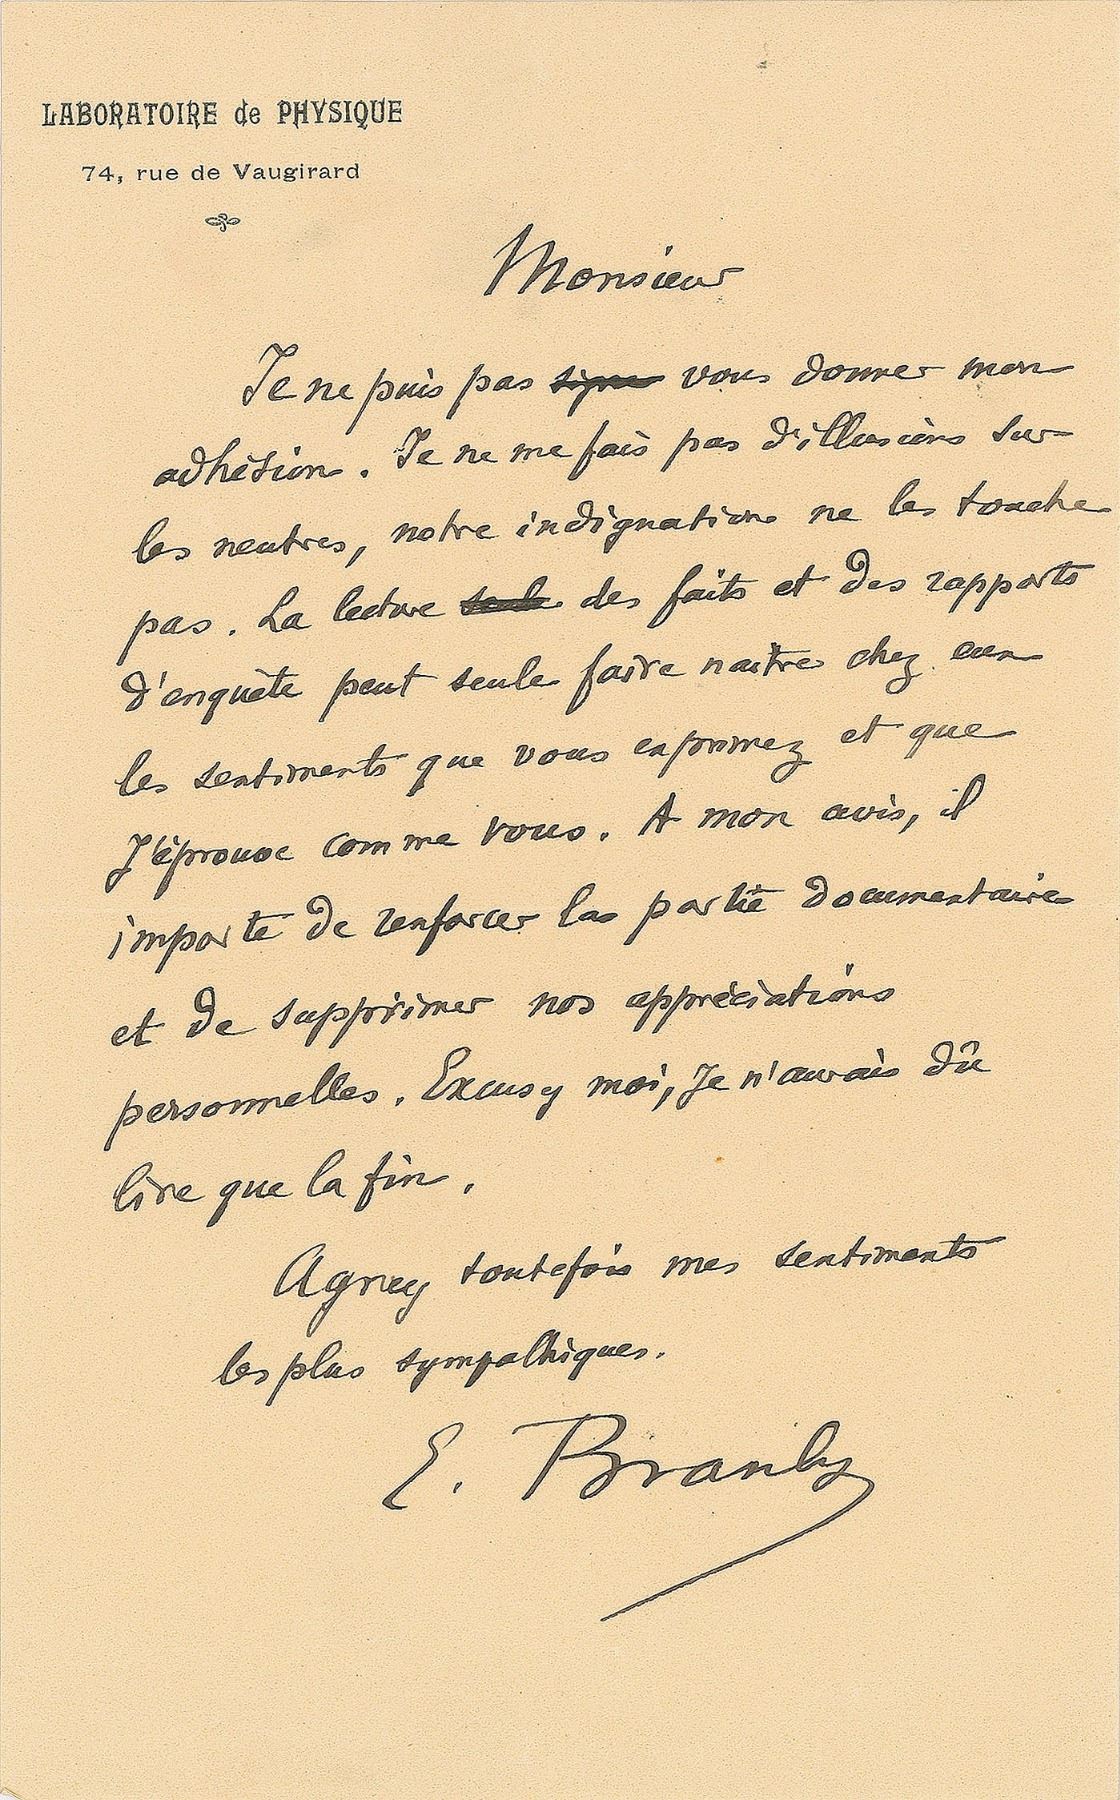 LABORATOIRE de PHYSIQUE
74, rue de Vaugirard
Monsieur
Je ne puis pas signer vous donner mon
adhésion. Je ne me fais pas d'illusions sur
les neutres, notre indignation ne les touche
pas. La lecture seule des faits et des rapports
d'enquête peut seule faire naître chez eux
les sentiments que vous exprimez et que
j'éprouve comme vous. A mon avis, il
importe de renforcer la partie documentaire
et de supprimer nos appréciations
personnelles. Excusez moi, je n'aurais dû
lire que la fin.
Agréez toutefois mes sentiments
les plus sympathiques.
E. Branly